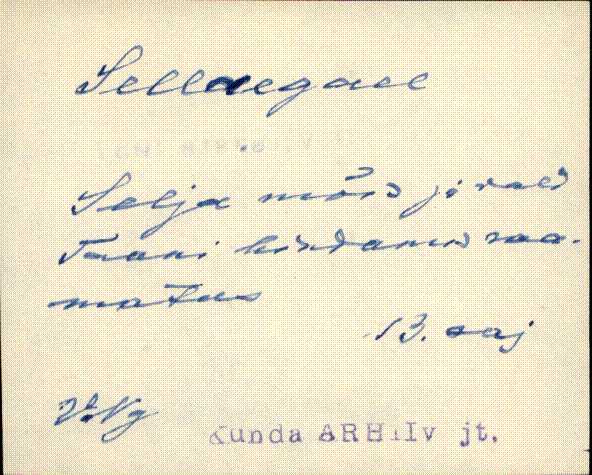 Sellaegael
Selja mõis ja vald
Taani hindamisraa-
matus
13. saj
V.Ng
Kunda ARHIIv jt.